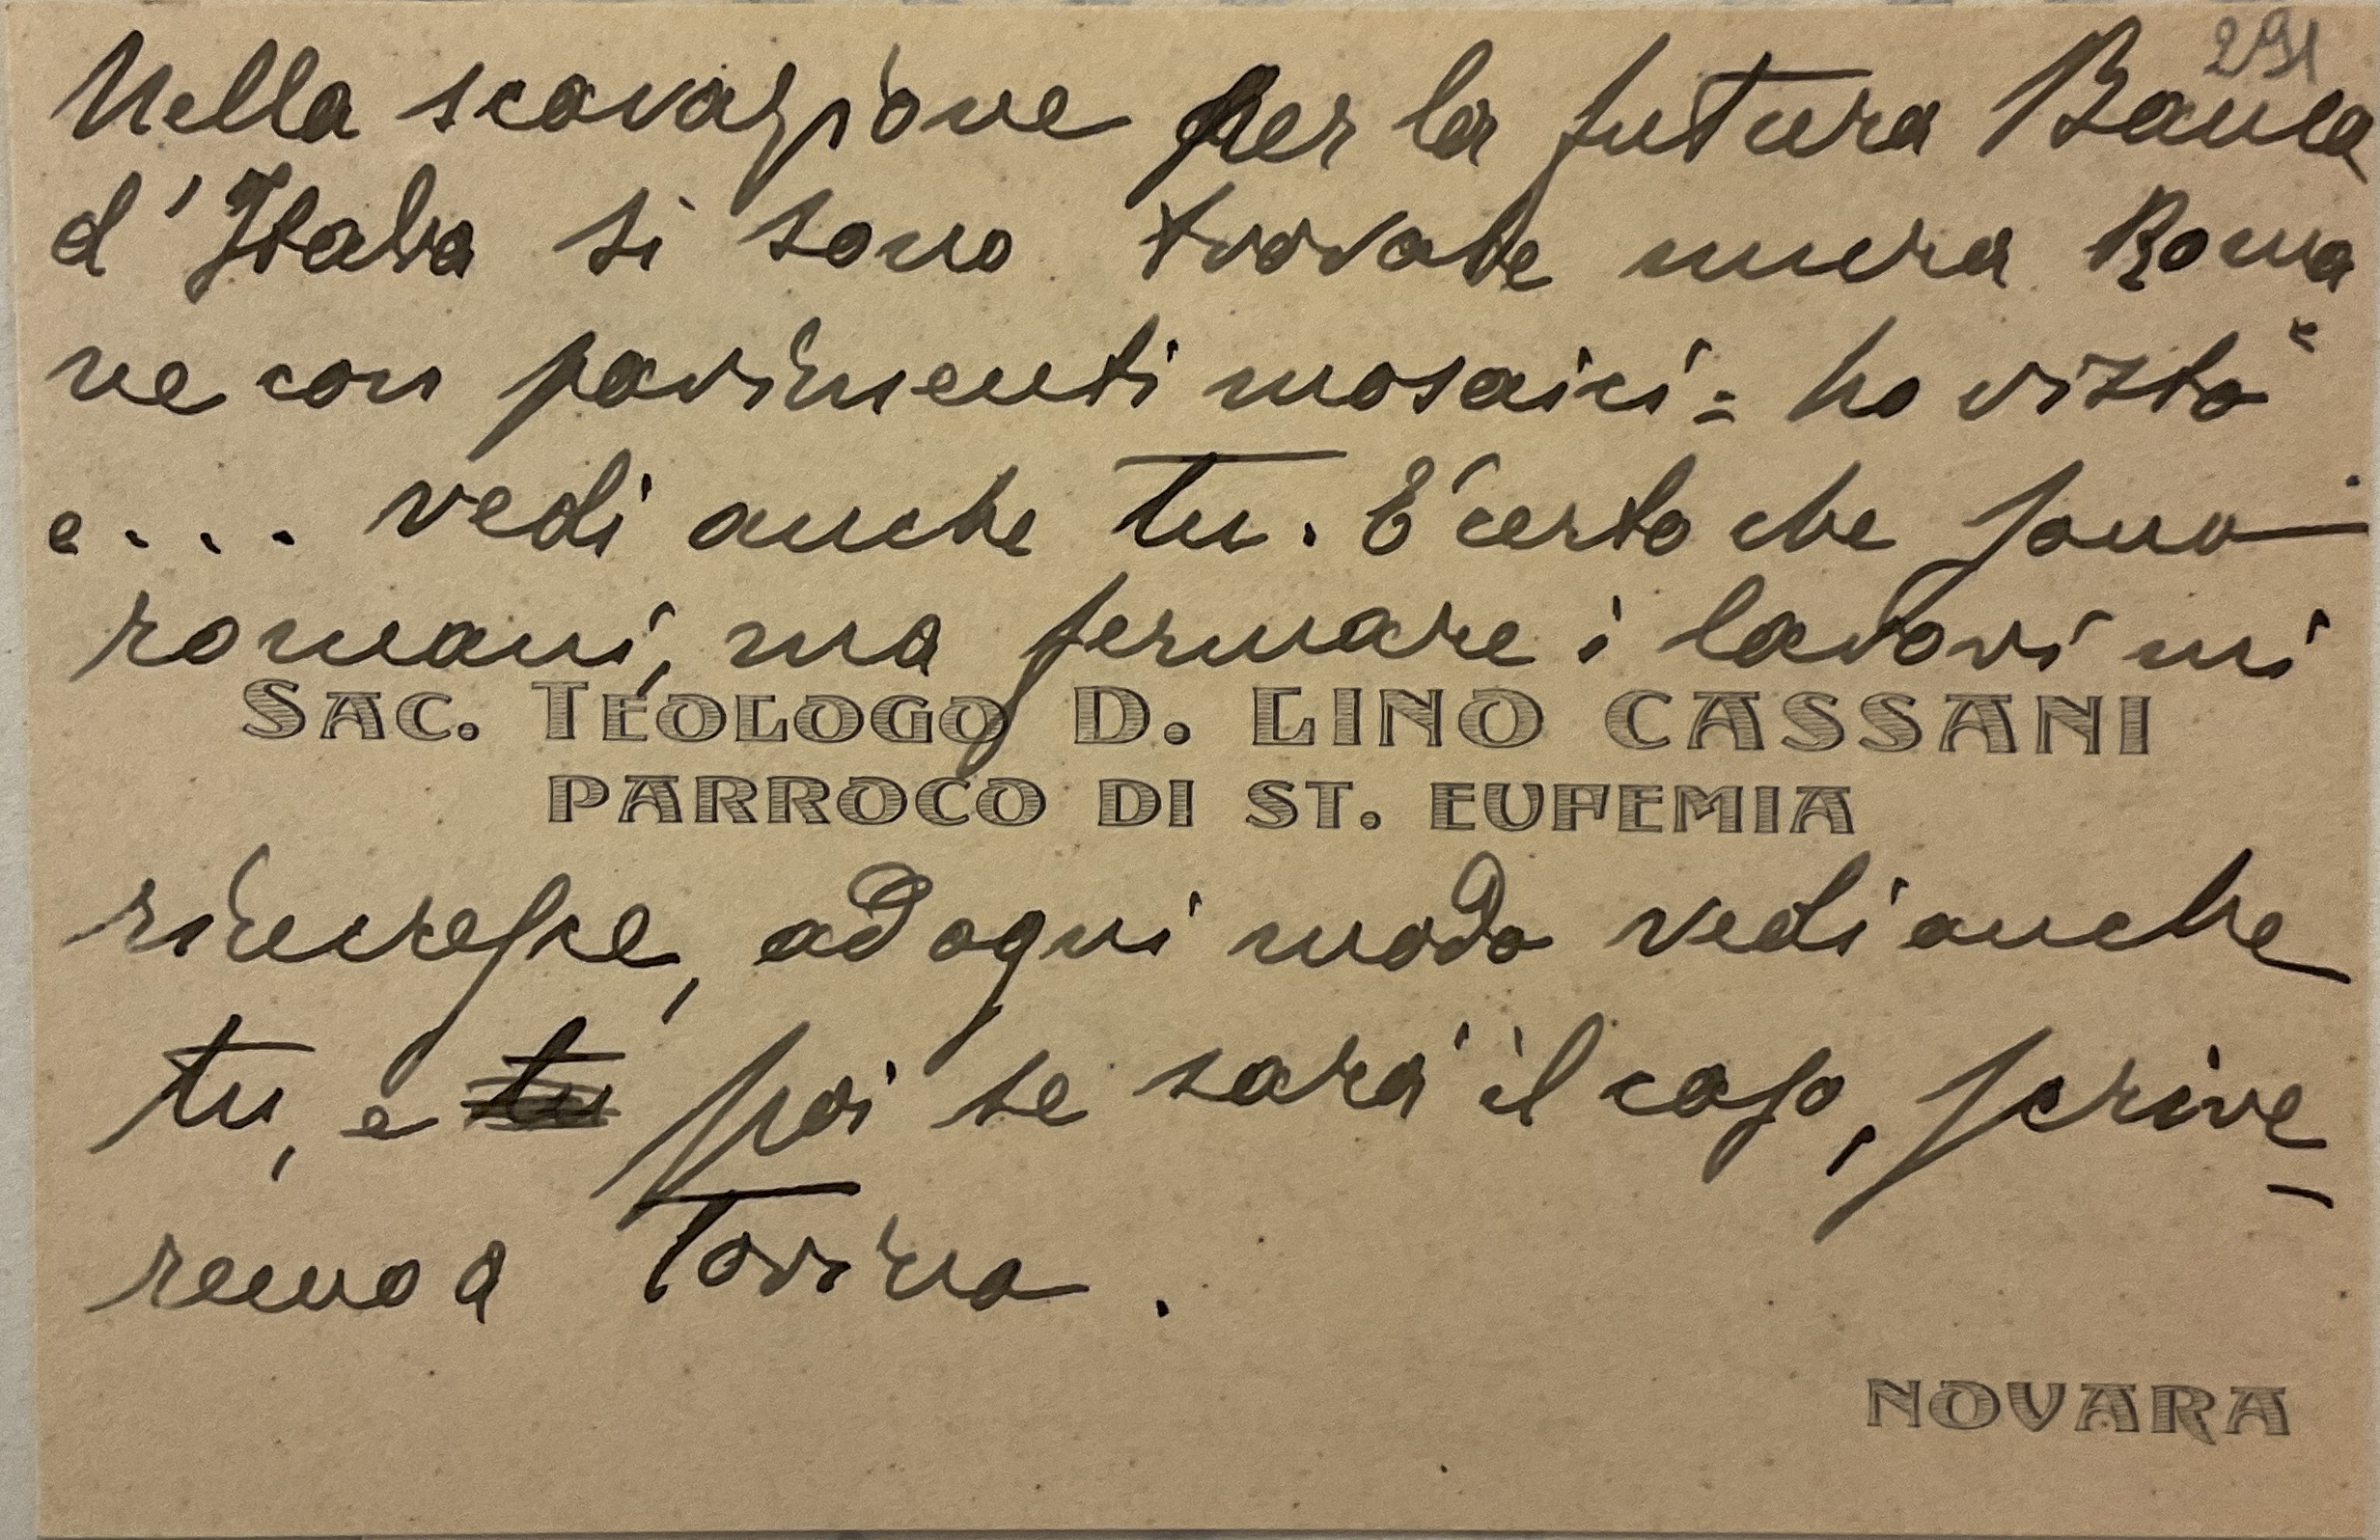 291
Nella scavazione per la futura Banca
d'Italia si sono trovate mura Roma
ne con pavimenti mosaici = ho visto
e... vedi anche tu. E' certo che sono
romani, ma fermare i lavori mi
SAC. TEOLOGO D. LINO CASSANI
PARROCO DI ST. EUFEMIA
rincresce, ad ogni modo vedi anche
tu, e tu poi se sarà il caso, scrive-
remo a Torino.
NOVARA